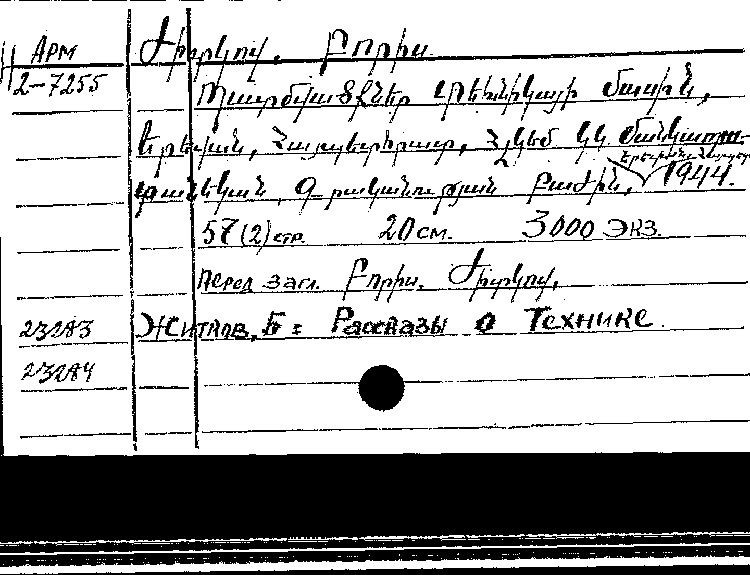 Арм
2-7255
Ժիտկով. Բորիս.
Պատմվածքներ տեխնիկայի մասին,
Երևան, Հայպետհրատ, ՀԼԿԵՄ ԿԿ Մանկապա-
տանեկան Գրականության Բաժին, 1944.
57 (2) стр. 20 см. 3000 экз.
Перед загл. Բորիս. Ժիտկով.
23283 Житков, Б = Рассказы о Технике.
23284